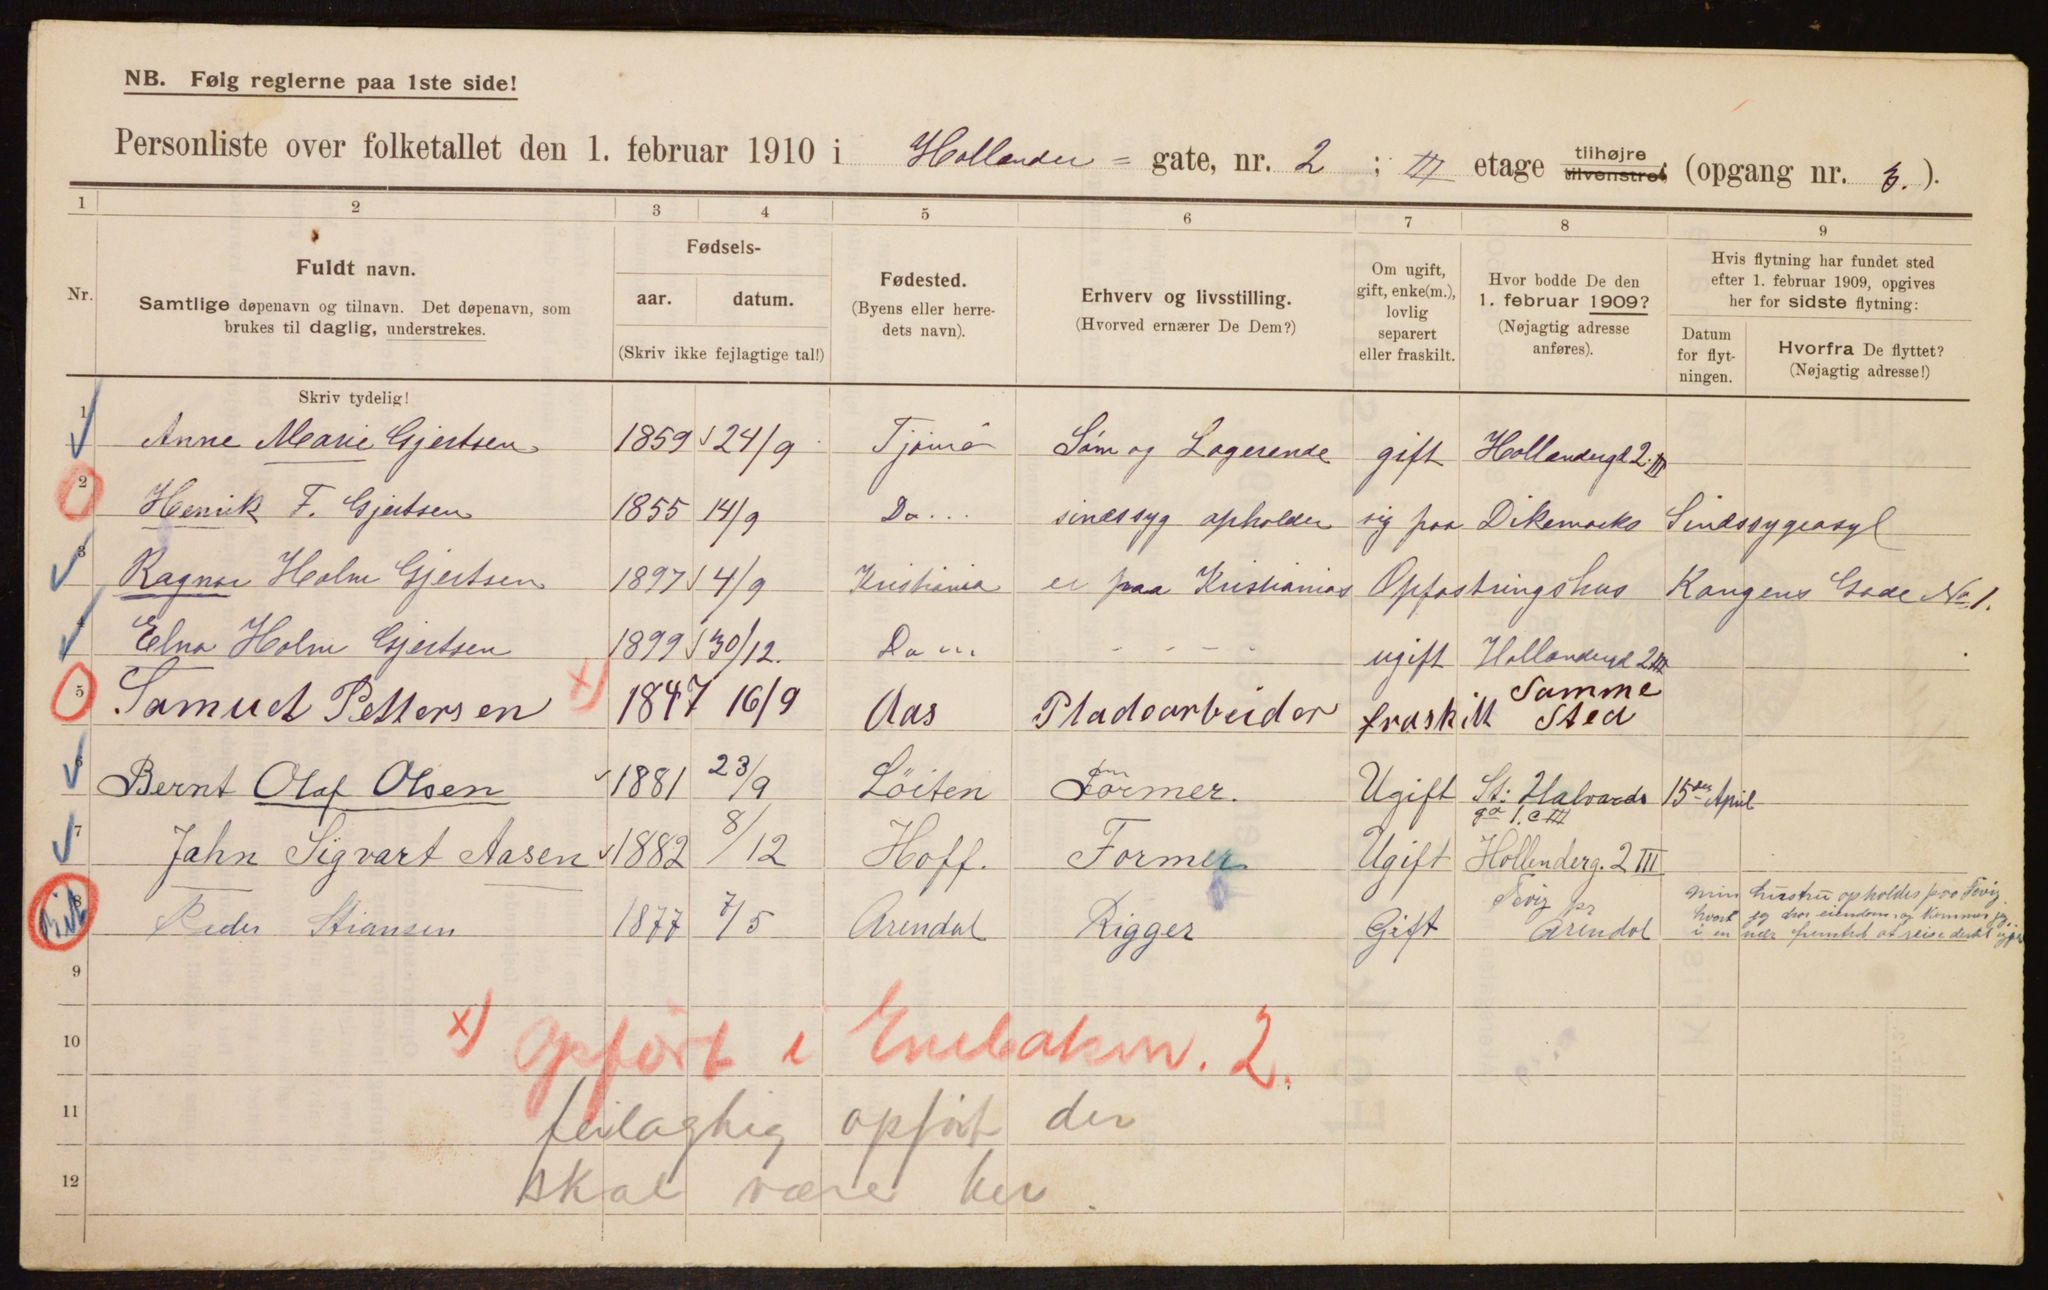 NB. Følg reglerne paa 1ste side!
Personliste over folketallet den 1. februar 1910 i Hollender = gate, nr. 2 ; III etage tilhøjre tilvenstre, (opgang nr. ).
1 2 3 4 5 6 7 8 9
Nr.
Fuldt navn.
Samtlige døpenavn og tilnavn. Det døpenavn, som
brukes til daglig, understrekes.
Fødsels-
aar. datum.
(Skriv ikke fejlagtige tal!)
Fødested.
(Byens eller herre-
dets navn).
Erhverv og livsstilling.
(Hvorved ernærer De Dem?)
Om ugift,
gift, enke(m.),
lovlig
separert
eller fraskilt.
Hvor bodde De den
1. februar 1909?
(Nøjagtig adresse
anføres).
Hvis flytning har fundet sted
efter 1. februar 1909, opgives
her for sidste flytning:
Datum
for flyt-
ningen.
Hvorfra De flyttet?
(Nøjagtig adresse!)
Skriv tydelig!
1 Anne Marie Gjertsen 1859 24/9 Tjømø Søm og Logerende gift Hollendergd 2 III
2 Henrik F. Gjertsen 1855 14/9 Do... sindssyg opholder sig paa Dikemarks Sindssygeasyl
3 Ragnar Holm Gjertsen 1897 4/9 Kristiania er paa Kristianias Opfostringshus Kongens Gade No 1.
4 Elna Holm Gjertsen 1899 30/12. Do ... - - - - ugift Hollendergd 2 III
5 Samuel Pettersen x) 1847 16/9 Aas Pladsarbeider fraskilt Samme
Sted
6 Bernt Olaf Olsen 1881 23/9 Löiten Former. Ugift St. Halvards 15 den April
ga 1. c III
7 Jahn Sigvart Aasen 1882 8/12 Hoff. Former Ugift Hollenderg. 2 III
8 Peder Stiansen 1877 7/5 Arendal Rigger Gift Feviz pr
Arendal
min hustru opholder paa Feviz
hvor jeg har eiendom, og kommer jeg
i en nær fremtid at reise dertil
9
10 x) Opført i Enebakvn. 2.
11 feilagtig opført der
12 skal være her.